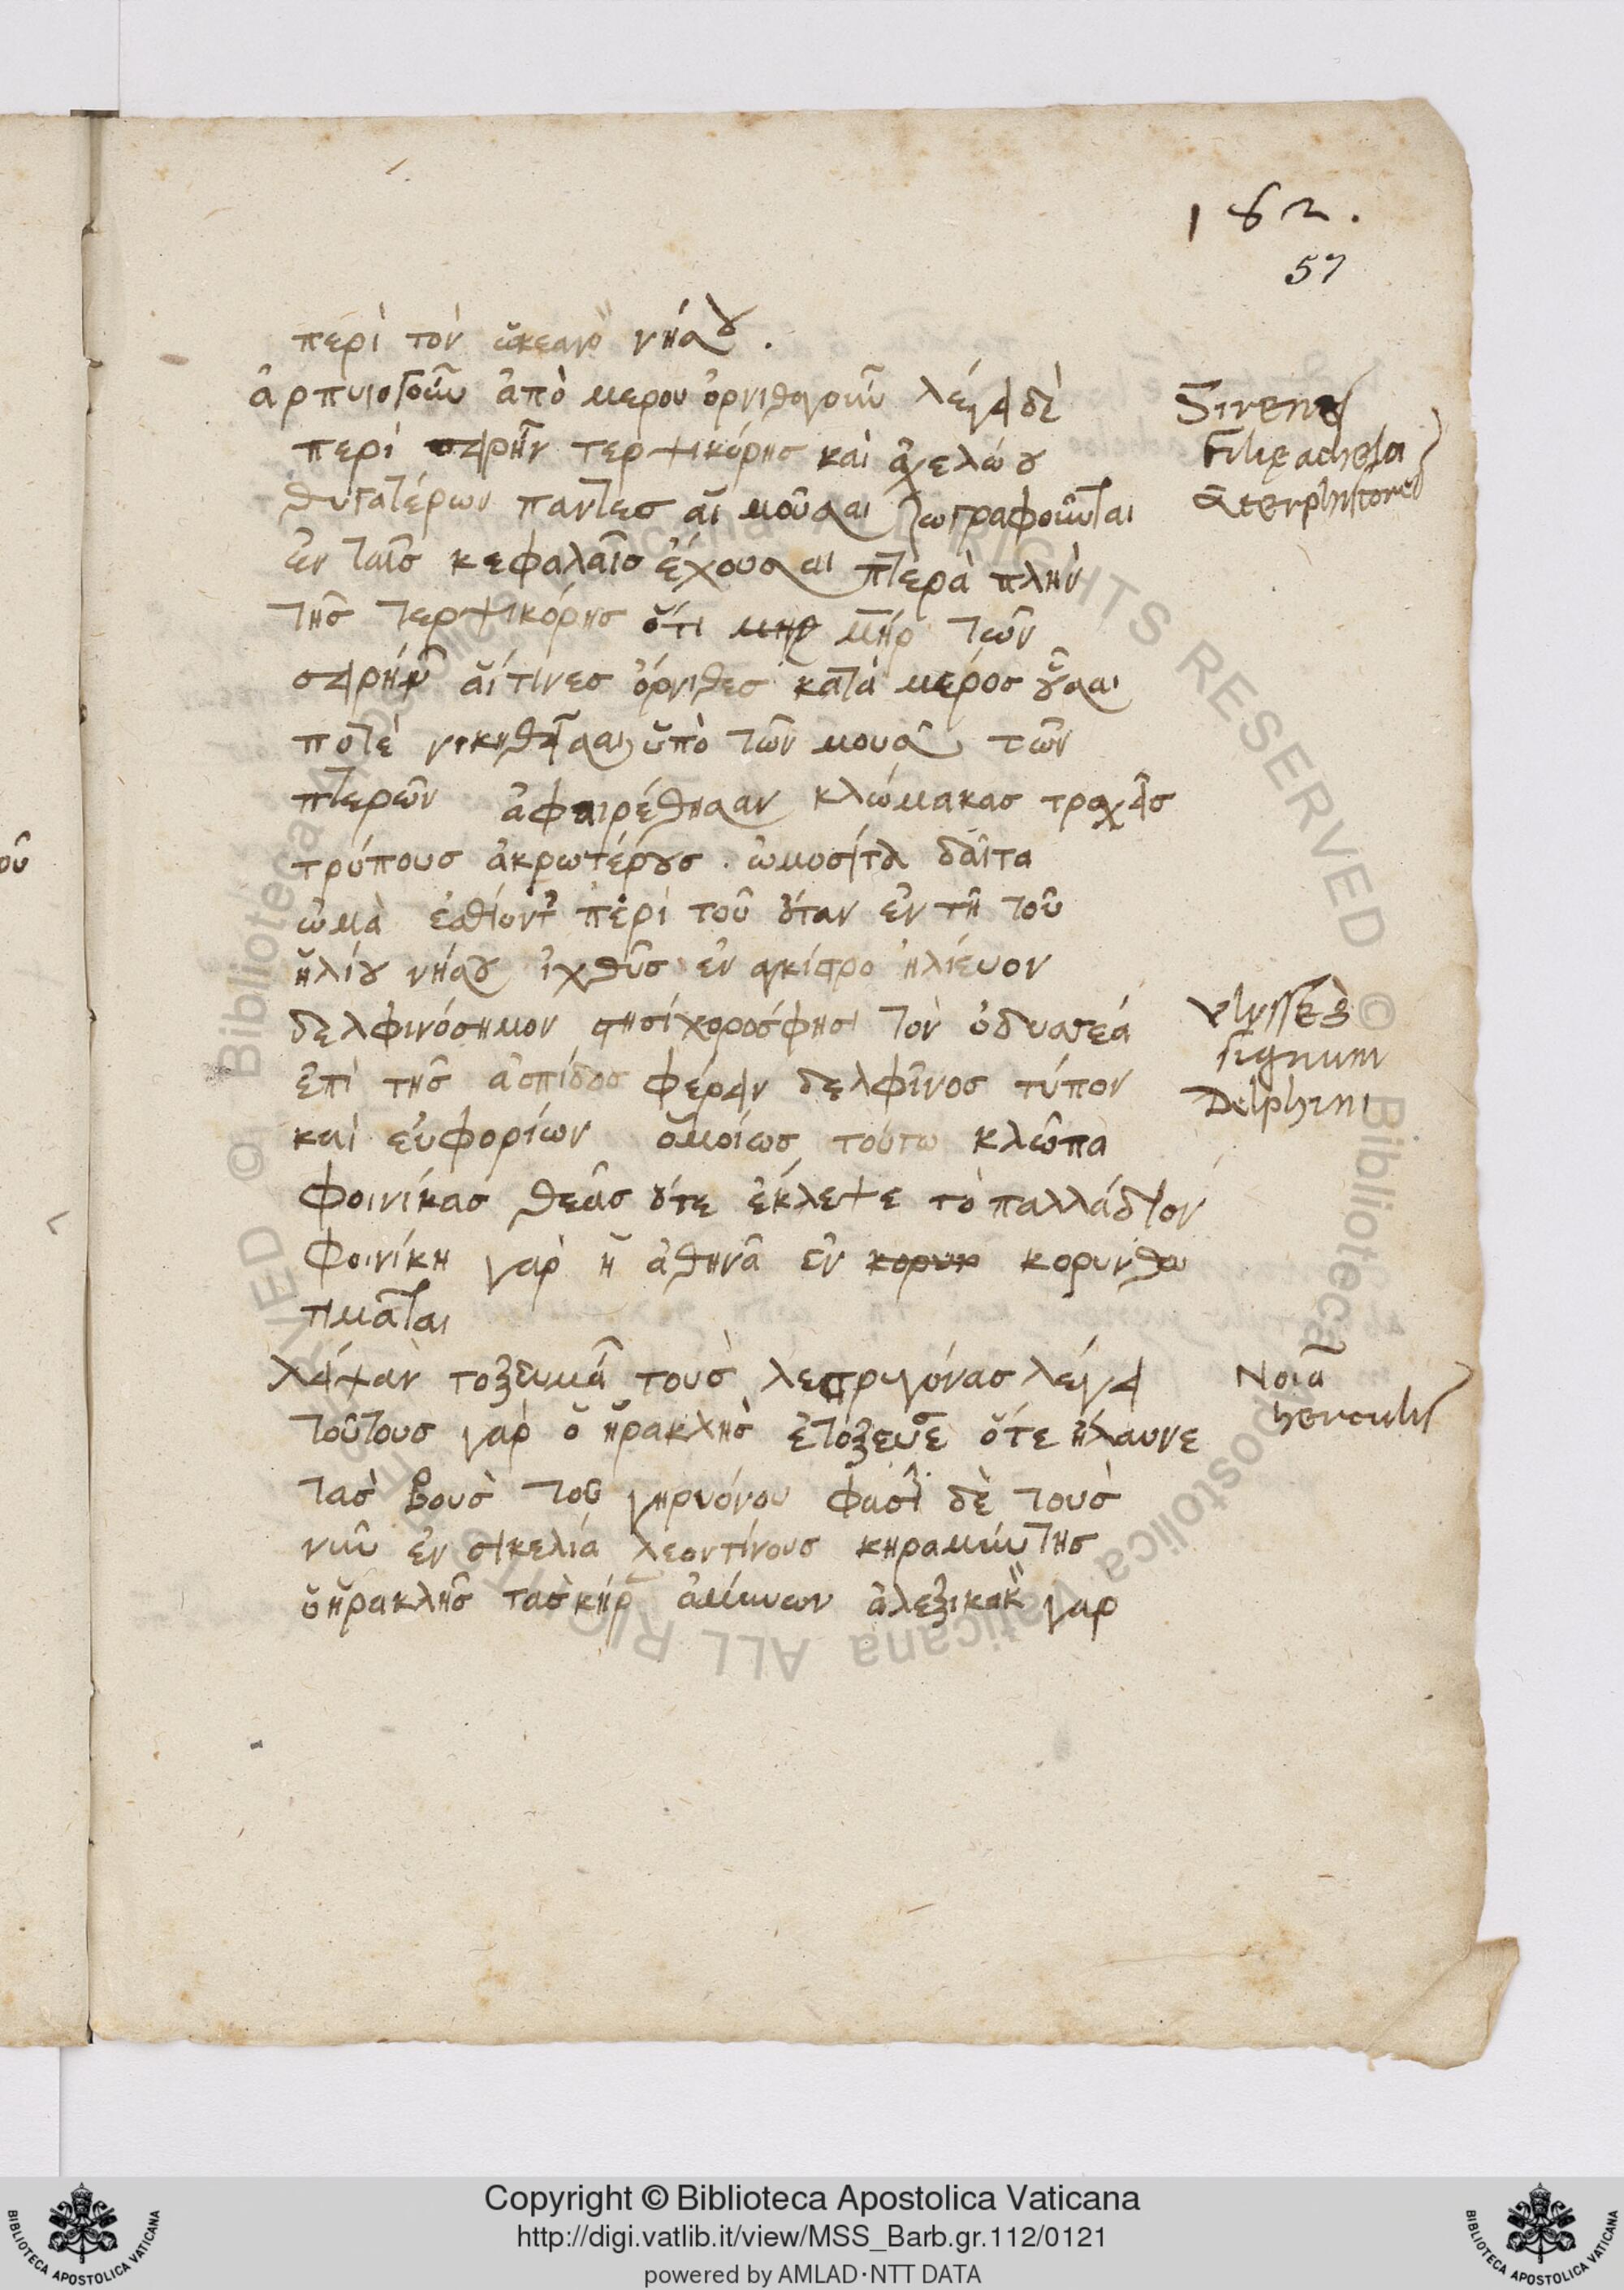 182.
57
περὶ τὸν ὠκεανὸ νήσου.
ἁρπυιογούν ἀπὸ μερου ὀρνιθογούν λέγει δὲ
περὶ σειρήν τερψικόρης καὶ ἀχελώου
θυγατέρων παντες αἱ μοῦσαι ζωγραφοῦνται
ἐν ταῖς κεφαλαῖς ἔχουσαι πτερὰ πλὴν
τῆς τερψικόρης ὅτι μηρ μήρ τῶν
σειρήν αἵτινες ὄρνιθες κατὰ μέρος οὖσαι
ποτὲ νικηθεῖσαι ὑπὸ τῶν μουσ τῶν
πτερῶν ἀφαιρέθησαν κλώμακας τραχεῖς
τρόπους ἀκρωτέρους. ὠμοσίτα δαῖτα
ὠμὰ ἐσθίοντ περὶ τοῦ ὅταν ἐν τῆ τοῦ
ἡλίου νήσου ἰχθῦς ἐν αγκίστρο ἡλίευον
δελφινόσημον στησίχορος φησι τὸν ὀδυσσεά
ἐπὶ τῆς ἀσπίδος φέρειν δελφῖνος τύπον
καὶ εὐφορίων ὁμοίως τούτω κλῶπα
φοινίκας θεᾶς ὅτε ἔκλεψε τὸ παλλάδιον
φοινίκη γαρ ἡ ἀθηνᾶ ἐν κορυν κορυνθω
τιμᾶται
λείψαν τοξευμά τοὺς λεστριγόνας λέγει
τούτους γαρ ὁ ἡρακλῆς ἐτόξευσε ὅτε ἤλαυνε
τας βοῦς τοῦ γηρυόνου φασὶ δὲ τοὺς
νῦν ἐν σικελία λεοντίνους κηραμύντης
ὁ ἡρακλῆς τὰς κήρ ἀμύνων ἀλεξίκακ γαρ
Sirenes
Filię acheloi
& terpsichores
Ulysses
signum
Delphini
Noia
herculis
ου
Copyright © Biblioteca Apostolica Vaticana
http://digi.vatlib.it/view/MSS_Barb.gr.112/0121
powered by AMLAD·NTT DATA
BIBLIOTECA APOSTOLICA VATICANA
BIBLIOTECA APOSTOLICA VATICANA
© Biblioteca Apostolica Vaticana ALL RIGHTS RESERVED
© Biblioteca Apostolica Vaticana ALL RIGHTS RESERVED